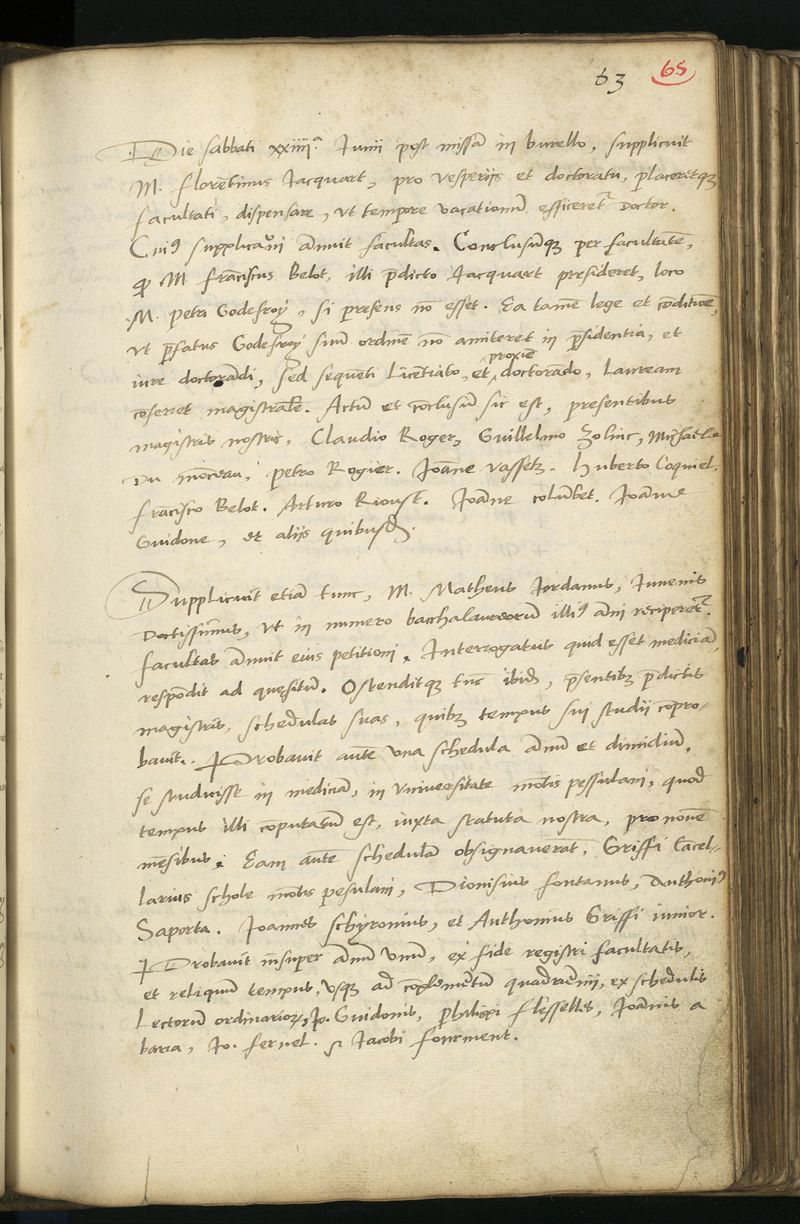 63 65
Die sabbati xxiiii.ª Junii post missā in burello, supplicuit
M. Florentinus Jacquart, pro vesperiis et doctoratu, placeretqꝫ
facultati, dispensare, ut tempore vacationū efficeretr doctor.
Cui9 supplicaōni ānuit facultas. Conclusūqꝫ per facultatē,
ꝙ M franciscus Belot, illi p̄dicto Jacquart presideret, loco
M. petri Godefroy, si presens nō esset. Ea tamē lege et cōditiōe,
ut p̄fatus Godefroy suū ordinē nō amitteret in p̄sidentia, et
iure doctorādi, sed sequenti Licentiato, et proxīe doctorādo, Lauream
cōferret magistralē. Actū et cōclusū sic est, presentibus
magistris nostris, Claudio Roger, Guillelmo Zolinc, Michaele
Du monceau, petro Rogier. Joāne Vassetz. Huberto Coquiel.
francisco Belot. Arturo Rioust. Joāne columbet. Joāne
Guidone, et aliis quibusdā.
Supplicuit etiā tunc, M. Matheus Jordanus, Juvenis
doctissimus, ut in numero bacchalaureorū illi9 āni reciperetr.
facultas ānuit eius petitioni. Interrogatus quid esset mediciā,
respōdit ad quesitū. Ostenditqꝫ tūc ibidē, p̄sentibꝫ p̄dictis
magistris, schedulas suas, quibꝫ tempus sui studii cōpro-
bavit. Probavit aute una schedula ānū et dimidiū,
se studuisse in mediciā, in Universitate mōtis pessulani, quod
tempus illi cōputatū est, iuxta statuta nostra, pro novē
mēsibus. Eam aūte schedulā obsignaverāt, Griffi Cācel-
larius schole mōtis pesulani, Dionisius fontanus, Anthoni9
Saporta. Joannes schyronius, et Anthonius Griffi iunior.
Probavit insuper ānū unū, ex fide registri facultatis,
et reliquū tempus, usqꝫ ad cōplemētū quadriēnii, ex schedulis
Lectorū ordinarioꝝ, Jo. Guidonis, philippi flesselles, Joānis a
barra, Jo. fernel. et Jacobi fourment.